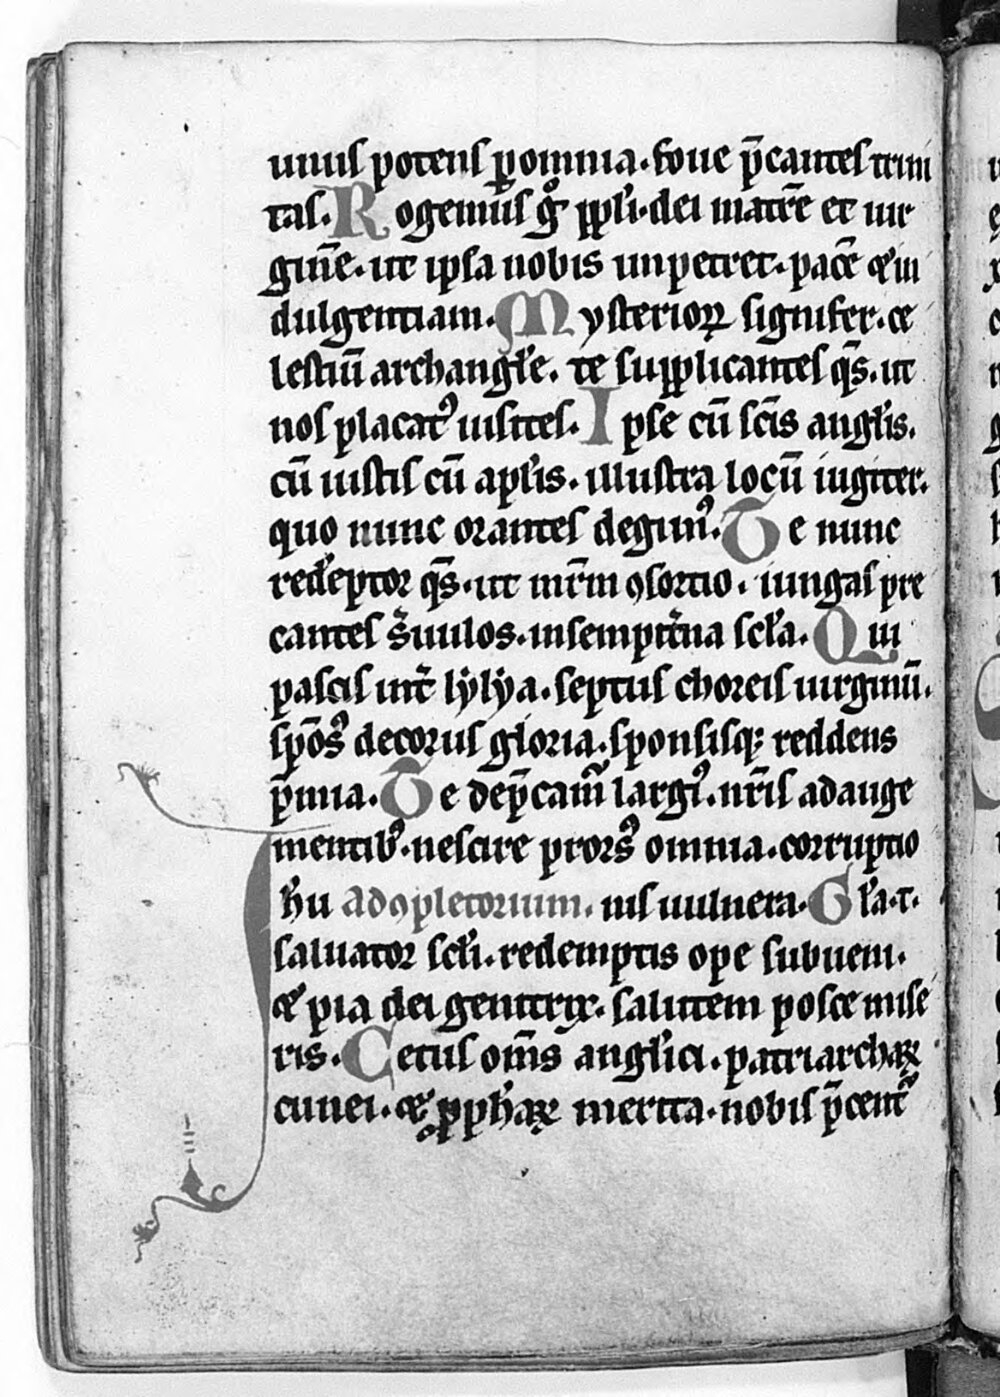 unus potens p̄ omnia. foue p̄cantes trini
tas. Rogemus g̊ pp̄li. dei matrē et uir
ginē. ut ipsa nobis inpetret. pacē ⁊ in
dulgentiam. Mysterioꝝ signifer. ce
lestiū archangl̄e. te supplicantes q̄s. ut
nos placatꝰ uisites. Ipse cū sc̄is angl̄is.
cū iustis cū apl̄is. illustra locū iugiter.
quo nunc orantes degimꝰ. Te nunc
redēptor q̄s. ut nr̄m ꝯsortio. iungas pre
cantes s̄uulos. insempit̄na sc̄la. Qui
pascis int̄ lylya. septus choreis uirginū.
spōsꝰ decorus gloria. sponsisqꝫ reddens
p̄mia. Te dep̄camᷣ largꝰ. nr̄is adauge
mentibꝰ. nescire prorsꝰ omnia. corruptio
Ihu ad ꝯpletorium. nis uulnera. Gl̄a. t.
saluator sc̄li. redemptis ope subueni.
⁊ pia dei genitrix. salutem posce mise
ris. Cetus om̄s angl̄ici. patriarchaꝝ
cunei. ⁊ ꝓphaꝝ merita. nobis p̄centᷣ